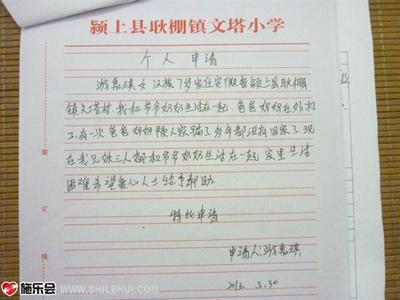 颍上县耿棚镇文塔小学
个人申请
游嘉琪 女 汉族 7岁 家住安微省颍上县耿棚
镇文塔村,我和爷爷奶奶生活在一起,爸爸妈妈在外打
工,有一次爸爸妈妈被人家骗了多年都没有回家了,现
在我兄妹三人都和爷爷奶奶生活在一起,家里生活
困难希望爱心人士给予帮助
特此申请
申请人:游嘉琪
2013. 5.30
装
订
线
施乐会
WWW.SHILEHUI.COM